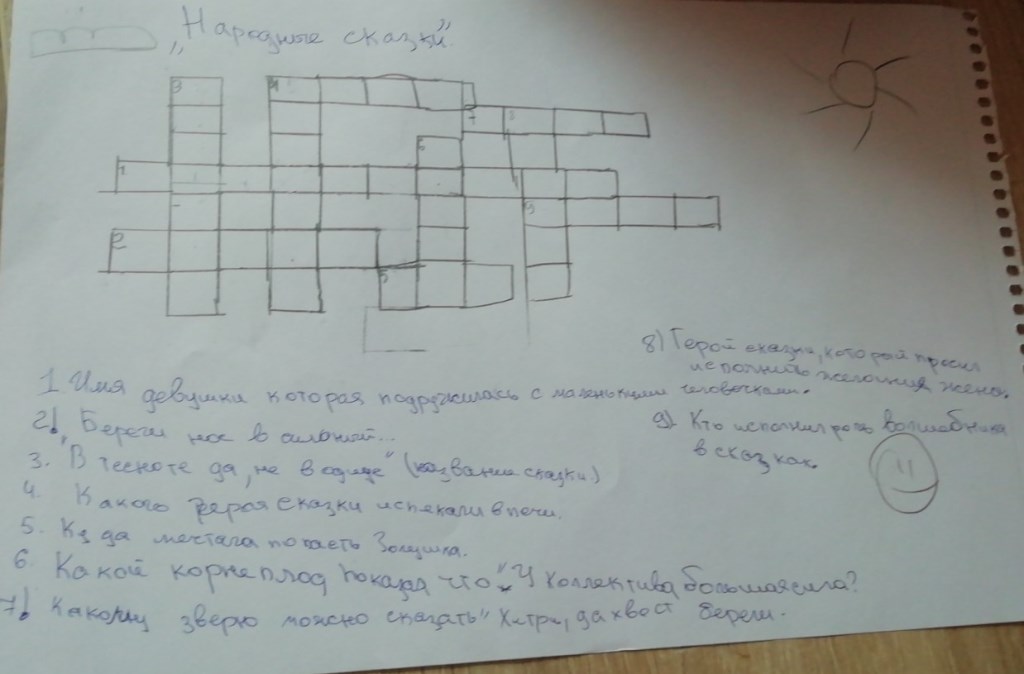 „Народные сказки”.
3
4
7
8
6
1
9
2
5
8) Герой сказки, который просил
исполнить желания жены.
1 Имя девушки которая подружилась с маленькими человечками.
2!, Береги нос в сильный...
9) Кто исполнил роль волшебника
в сказках.
3. "В тесноте да, не в обиде" (название сказки.)
4. Какого героя сказки испекали в печи.
5. Куда мечтала попасть Золушка.
6. Какой корнеплод показал что "У коллектива большая сила?
7! Какому зверю можно сказать "Хитри, да хвост береги.